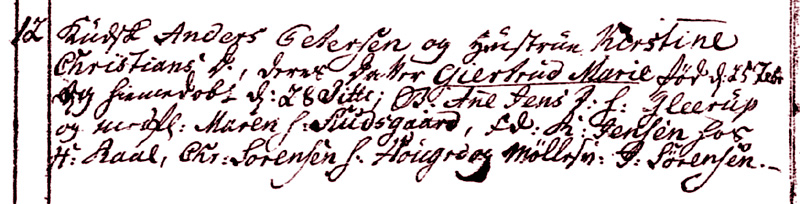 12 Kudsk Anders Petersen og Hustrue Kirstine
Christians D., deres Datter Giertrud Marie fød d: 25 Febr
og hiemedøbt d: 28 Ditto; B. Ane Jens D: f: Gleerup
og medfl: Maren f: Suudsgaard, Ed: K: Jensen hos
H: Raae, Chr: Sørensen f. og Møllesv: P: Sørensen.